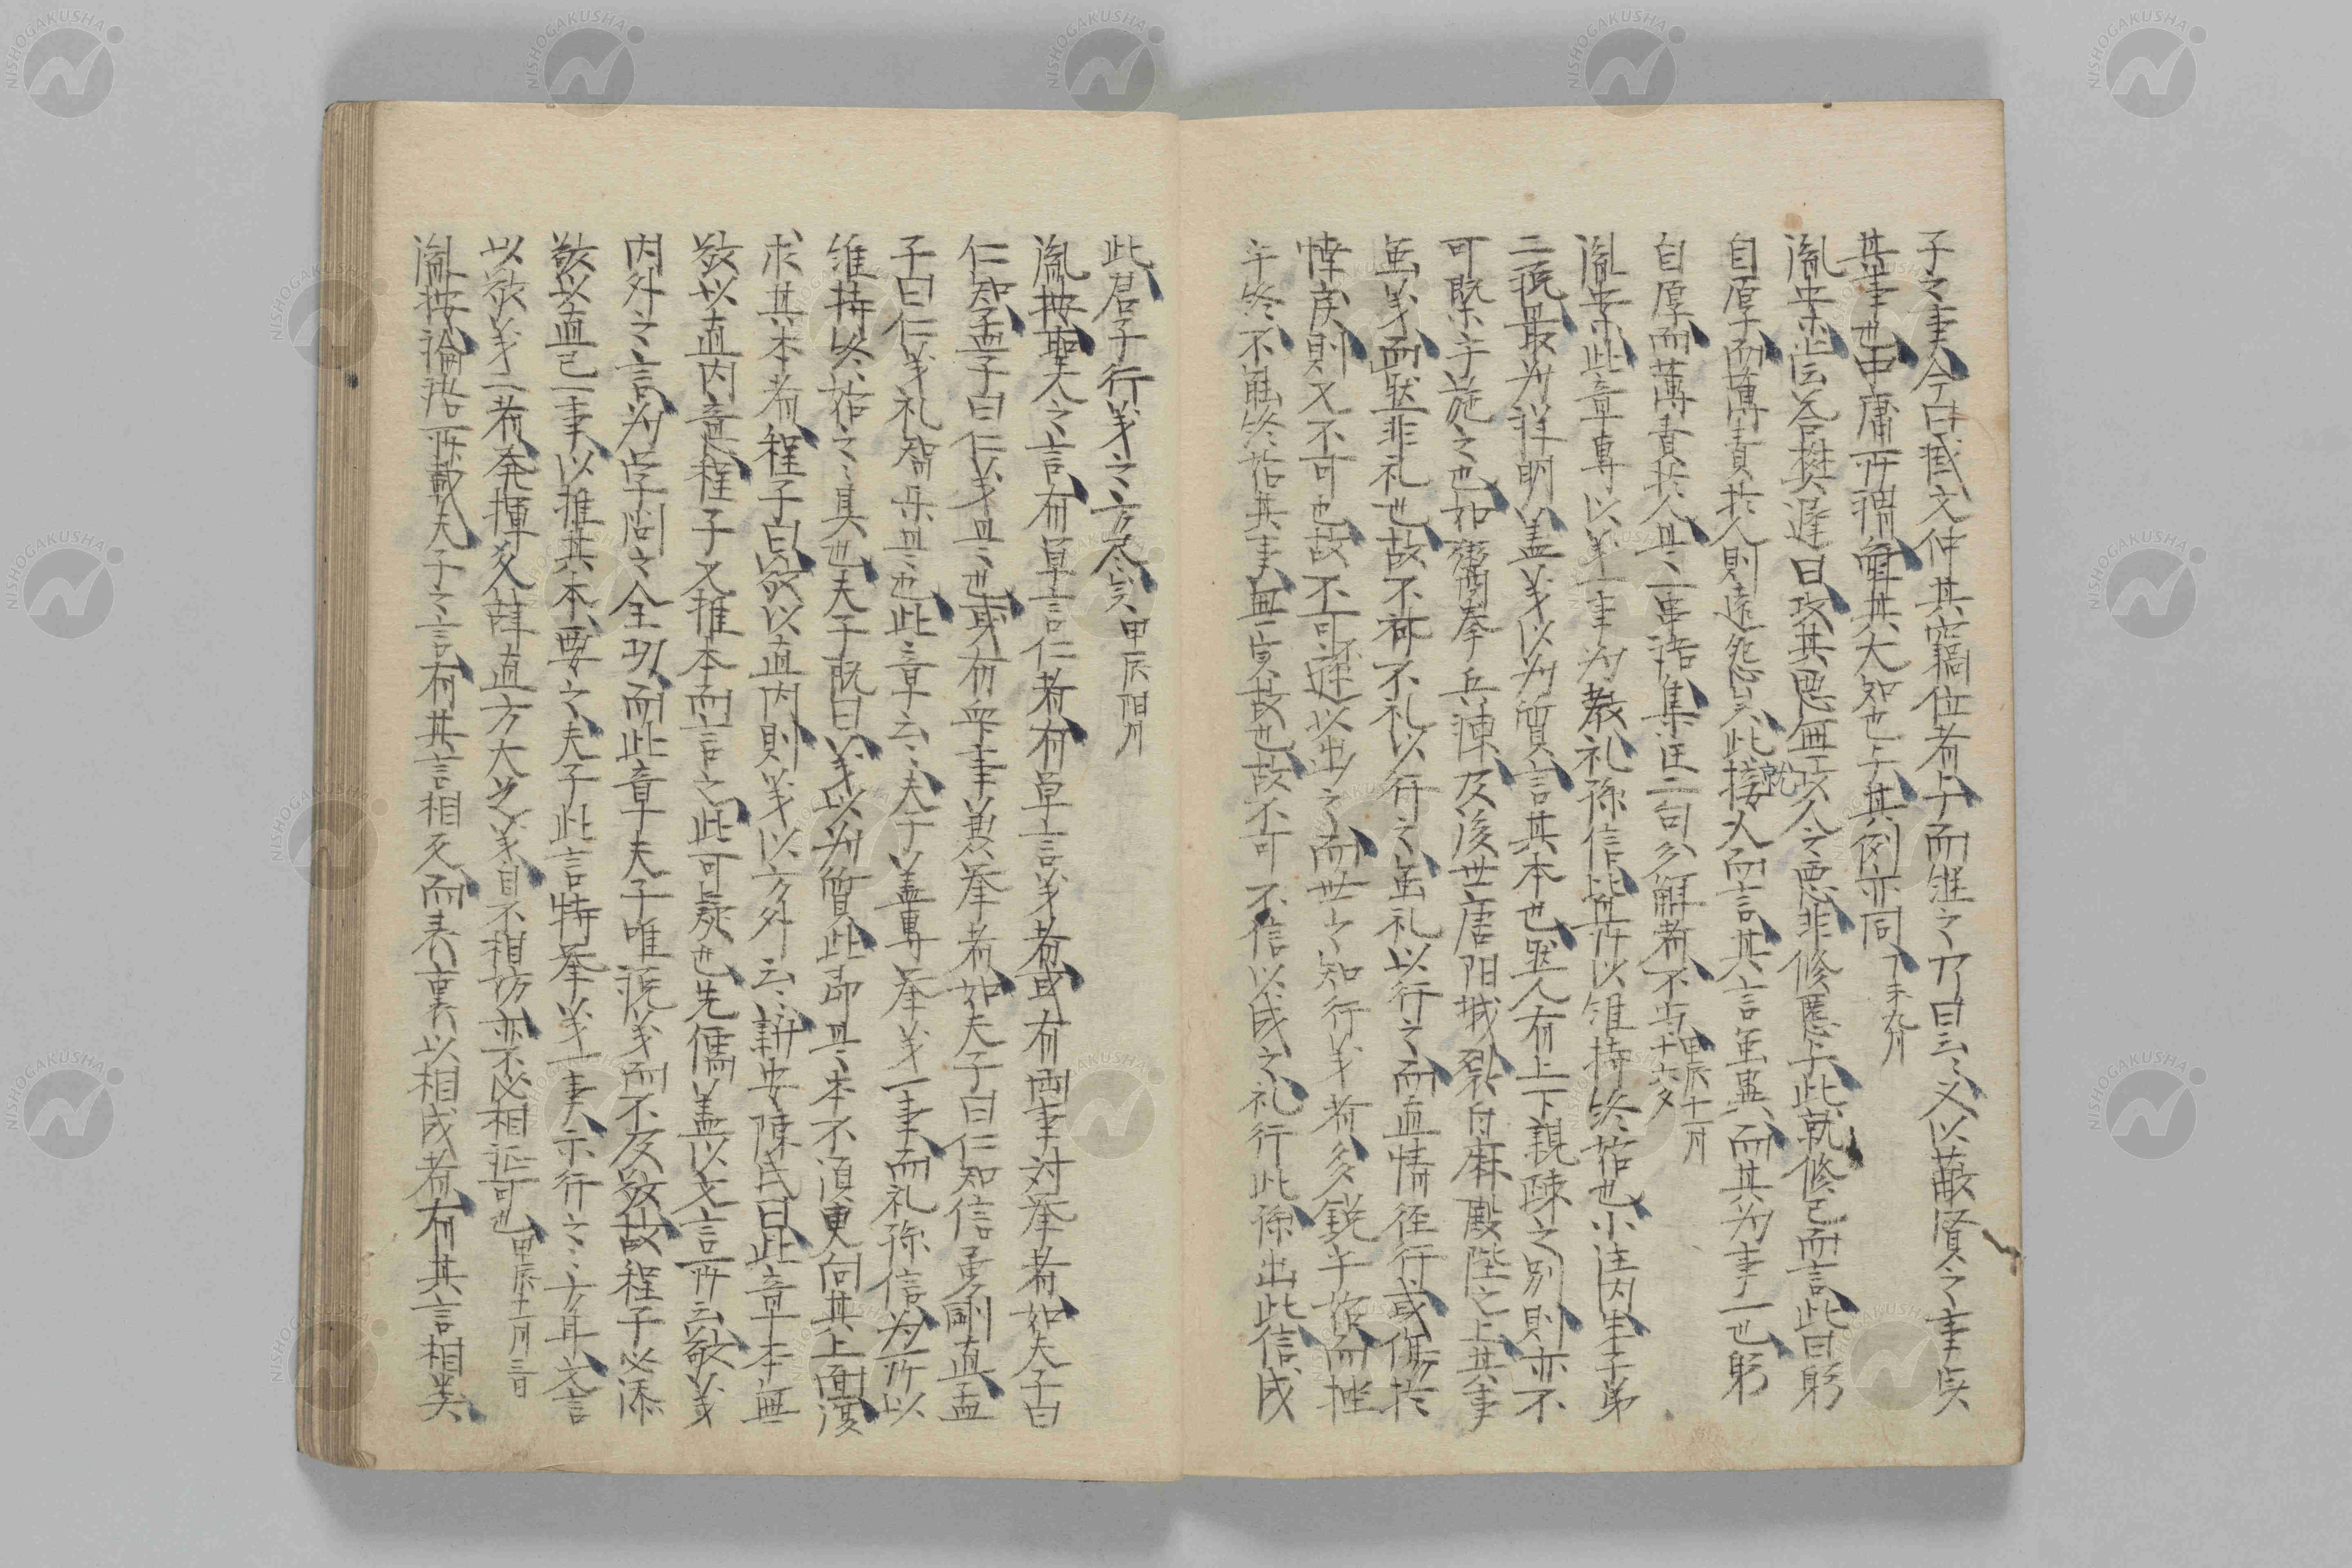 子之事今曰臧文仲其竊位者与而継之乃曰云々又以蔽賢之事矣
其事也中庸所謂舜其大知也与其例亦同丁未九月
胤安常云答樊遅曰攻其悪無攻人之悪非修慝乎此就修己而言此曰躬
自厚而薄責於人則遠怨矣此就接人而言其言雖異而其為事一也躬
自厚而薄責於人是一串語集註二句分解者不当甲辰十一月十六夕
胤安常此章専以義一事為教礼孫信此其所以維持終始也小注内朱子弟
二説最為詳明蓋義以為質言其本也然人有上下親疎之別則亦不
可既乎施之也如鬻拳兵諫及後世唐陽城裂白麻殿陛之上其事
雖義而然非礼也故不可不礼以行之雖礼以行之而直情径行或傷於
悻戻則又不可也故不可不遜以出之而世之知行義者多鋭乎始而挫
乎終不能終始其事無実故也故不可不信以成之礼行此孫出此信成
此君子行義之方尽矣甲辰陽月
胤按聖人之言有単言仁者有単言義者或有両事対挙者如夫子曰
仁知孟子曰仁義是也或有衆事兼挙者如夫子曰仁知信勇剛直孟
子曰仁義礼智是也此章云々夫子蓋専挙義一事而礼孫信為所以
維持終始之之具也夫子既曰義以為質此即是本不須更向其上面復
求其本者程子曰敬以直内則義以方外云々新安陳氏曰此章本無
敬以直内意程子又推本而言之此可疑也先儒蓋以文言所云敬義
内外之言為学問之全功而此章夫子唯説義而不及敬故程子必添
敬以直己一事以推其本要之夫子此言特挙義一事示行之之方耳文言
以敬義二者発揮爻辞直方大之義自不相妨亦不必相証可也甲辰十一月三日
胤按論語所載夫子之言有其言相反而表裏以相成者有其言相類